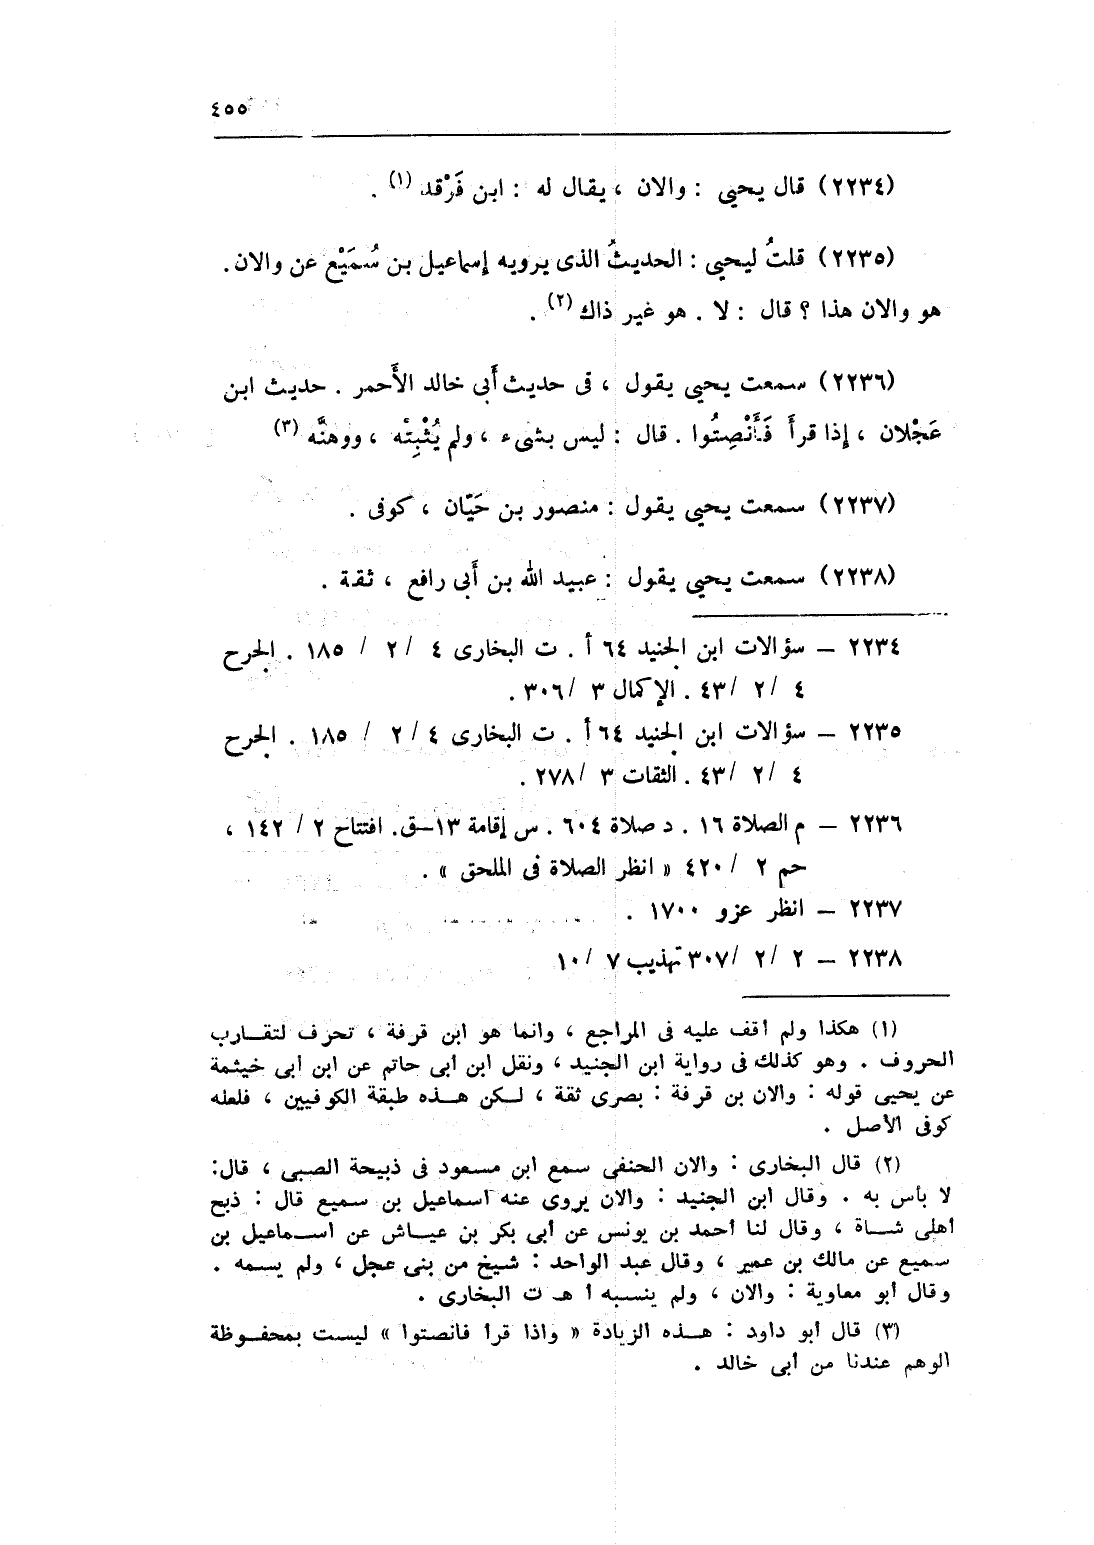 ٤٥٥
(٢٢٣٤) قال يحيي : والان ، يقال له : ابن فَرْقد (١) .
(٢٢٣٥) قلتُ ليحيي : الحديثُ الذى يرويه إسماعيل بن سُمَيْع عن والان .
هو والان هذا ؟ قال : لا . هو غير ذاك (٢) .
(٢٢٣٦) سمعت يحيي يقول ، فى حديث أَبى خالد الأَحمر . حديث ابن
عَجْلان ، إذا قرأَ فَأَنْصِتُوا . قال : ليس بشىء ، ولم يُثْبِتْه ، ووهنَّه (٣)
(٢٢٣٧) سمعت يحيي يقول : منصور بن حَيّان ، كوفى .
(٢٢٣٨) سمعت يحيي يقول : عبيد الله بن أَبى رافع ، ثقة .
٢٢٣٤ – سؤالات ابن الجنيد ٦٤ أ . ت البخارى ٤ / ٢ / ١٨٥ . الجرح
٤ / ٢ / ٤٣ . الإكمال ٣ / ٣٠٦ .
٢٢٣٥ – سؤالات ابن الجنيد ٦٤ أ . ت البخارى ٤ / ٢ / ١٨٥ . الجرح
٤ / ٢ / ٤٣ . الثقات ٣ / ٢٧٨ .
٢٢٣٦ – م الصلاة ١٦ . د صلاة ٦٠٤ . س إقامة ١٣–ق. افتتاح ٢ / ١٤٢ ،
حم ٢ / ٤٢٠ « انظر الصلاة فى الملحق » .
٢٢٣٧ – انظر عزو ١٧٠٠ .
٢٢٣٨ – ٢ / ٢ / ٣٠٧ تهذيب ٧ / ١٠
(١) هكذا ولم أقف عليه فى المراجع ، وانما هو ابن قرفة ، تحرف لتقارب
الحروف . وهو كذلك فى رواية ابن الجنيد ، ونقل ابن أبى حاتم عن ابن أبى خيثمة
عن يحيى قوله : والان بن قرفة : بصرى ثقة ، لكن هذه طبقة الكوفيين ، فلعله
كوفى الأصل .
(٢) قال البخارى : والان الحنفى سمع ابن مسعود فى ذبيحة الصبى ، قال:
لا بأس به . وقال ابن الجنيد : والان يروى عنه اسماعيل بن سميع قال : ذبح
أهلى شاة ، وقال لنا أحمد بن يونس عن أبى بكر بن عياش عن اسماعيل بن
سميع عن مالك بن عمير ، وقال عبد الواحد : شيخ من بنى عجل ، ولم يسمه .
وقال أبو معاوية : والان ، ولم ينسبه أ هـ ت البخارى .
(٣) قال أبو داود : هذه الزيادة « واذا قرأ فانصتوا » ليست بمحفوظة
الوهم عندنا من أبى خالد .